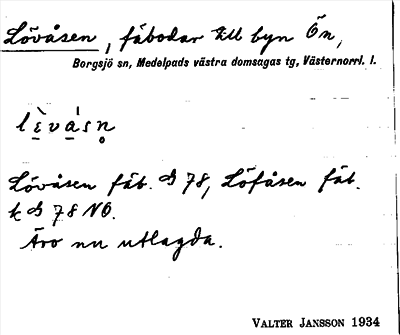 Lövåsen, fäbodar till byn Ön,
Borgsjö sn, Medelpads västra domsagas tg, Västernorrl. l.
lὲvásn̥
Lövåsen fäb. d 78, Löfåsen fäb.
k d 78 NO.
Äro nu utlagda.
VALTER JANSSON 1934